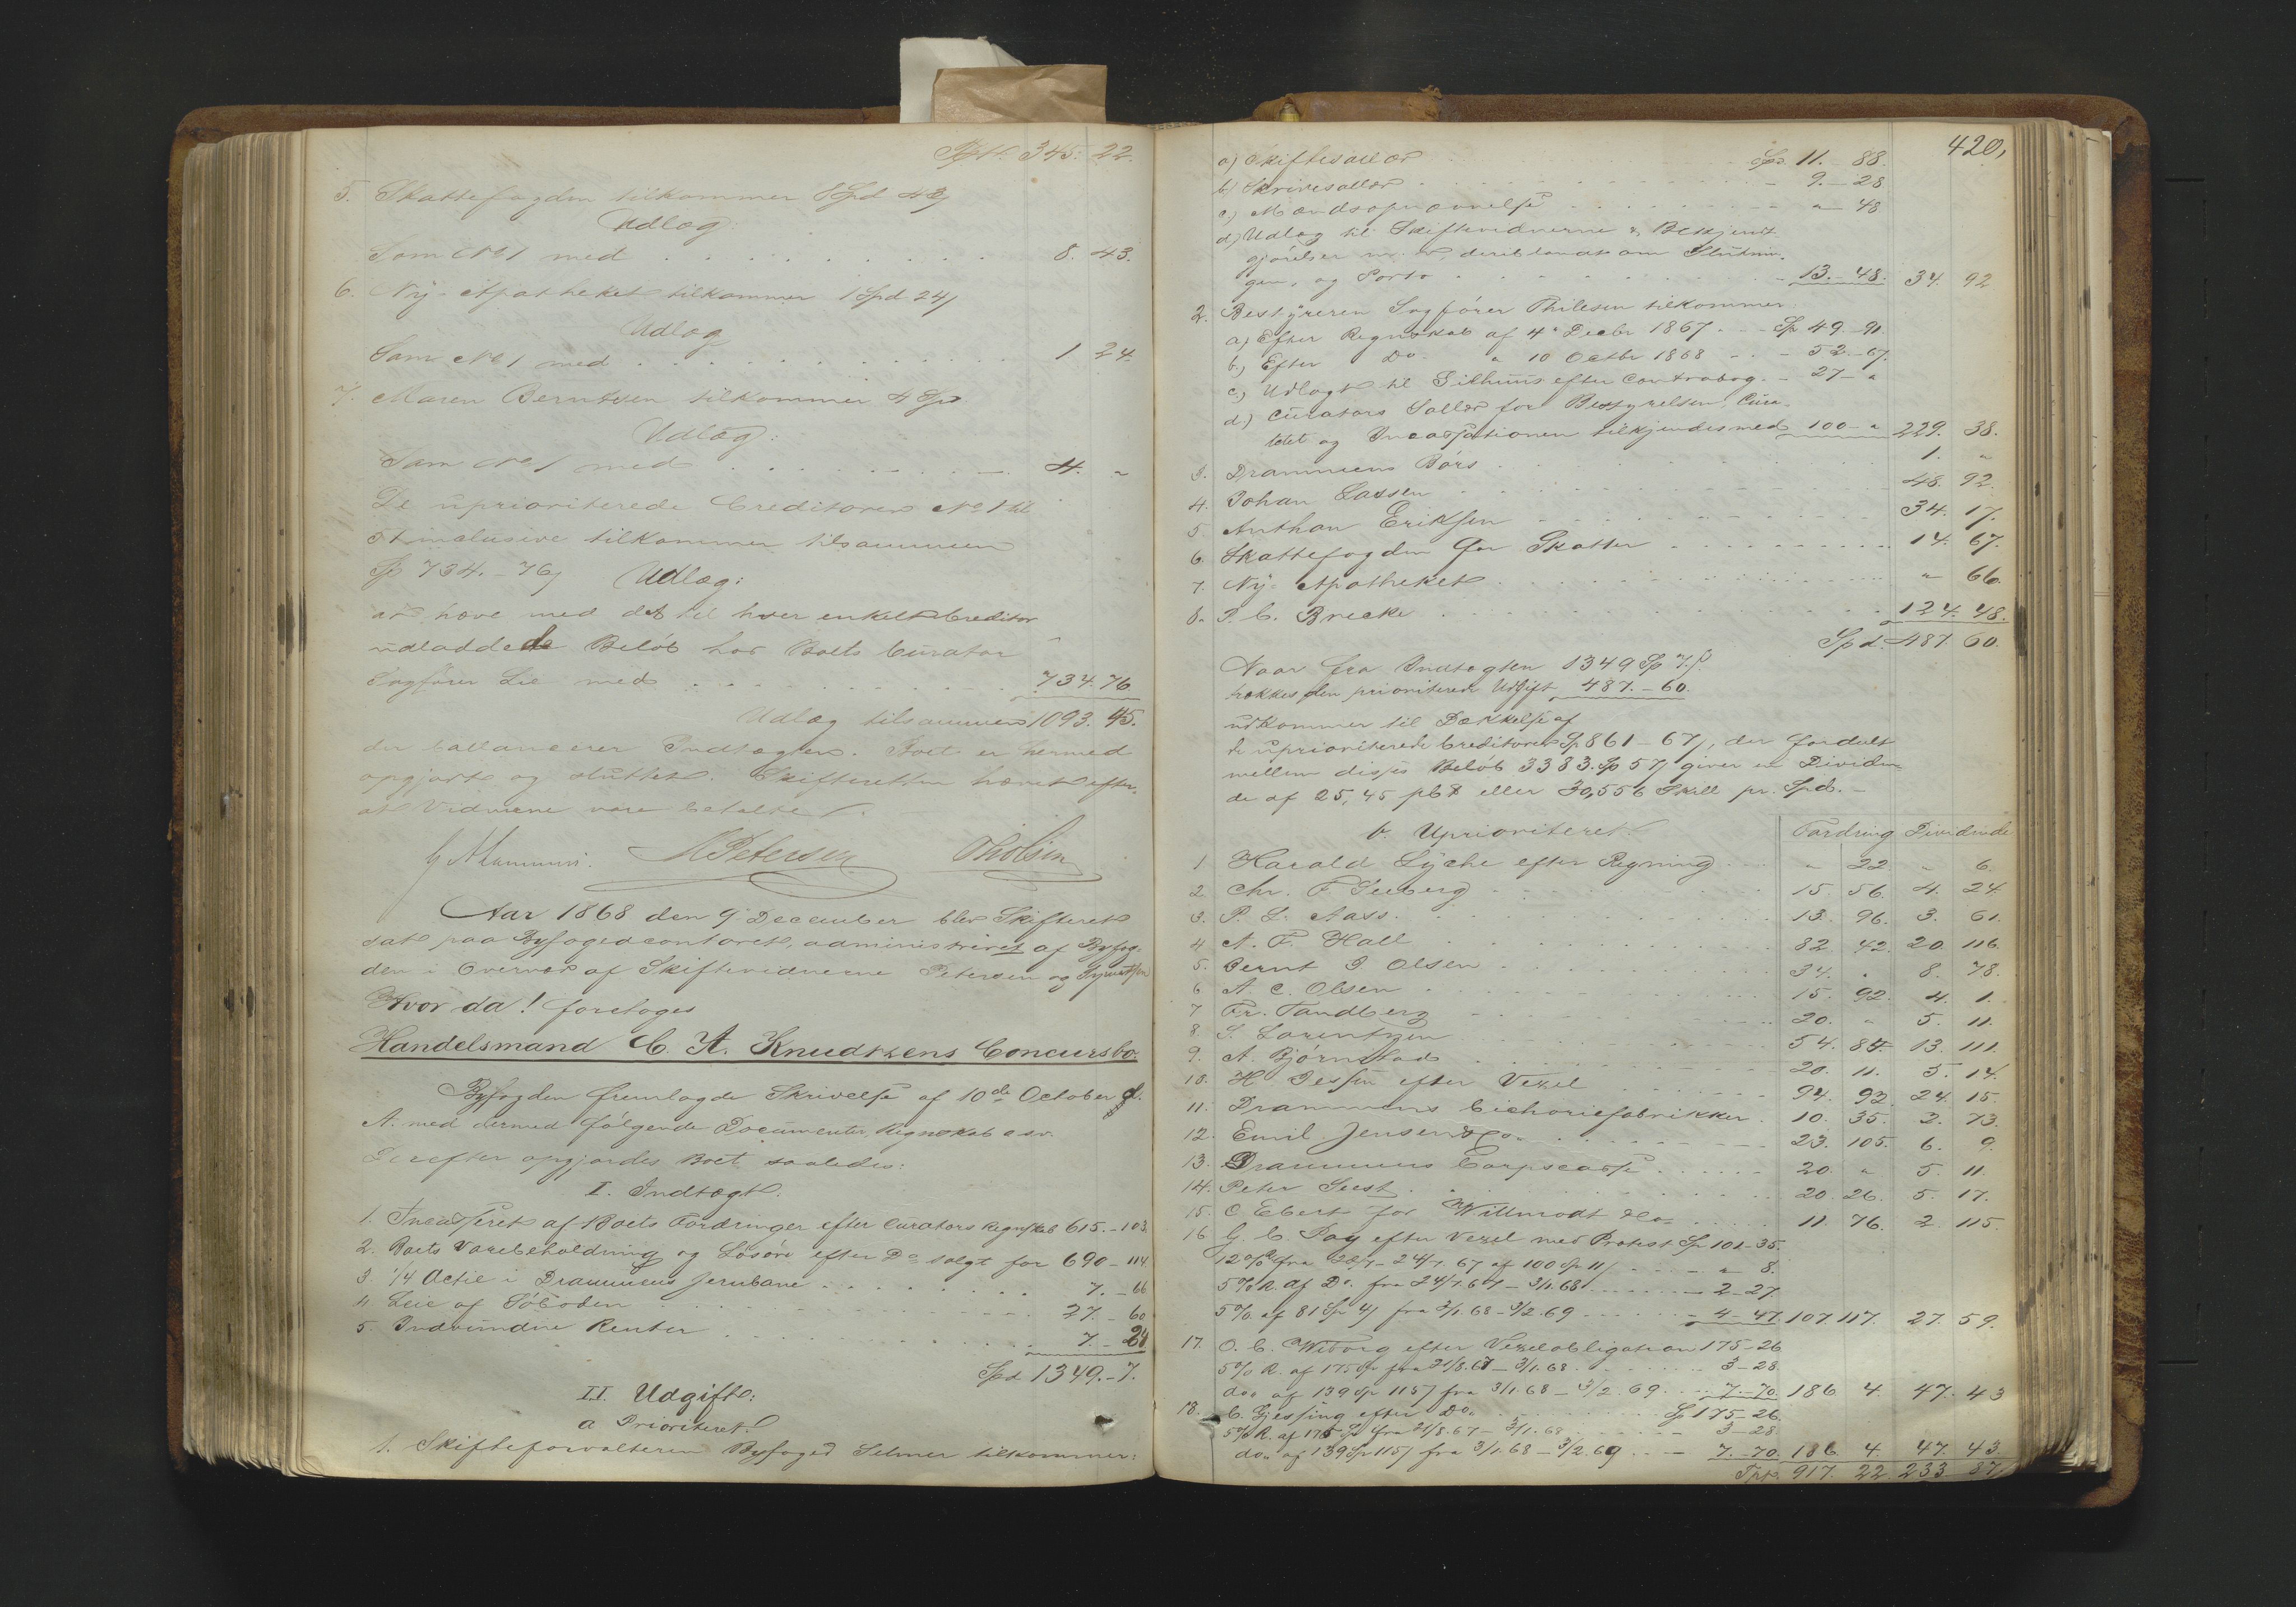 Tpt. 345. 22.
5. Skattefogden tilkommer 8 Spd 43ß
Udlæg:
Som No 1 med . . . 8. 43.
6. Ny-Apotheket tilkommer 1 Spd 24ß
Udlæg
Som No 1 med . . . 1 24.
7. Maren Berntsen tilkommer 4 Spd
Udlæg:
Som No 1 med . . . 4. "
De uprioriterede Creditorer No 1 til
51 inclusive tilkommer tilsammen
Sp 734.-76ß Udlæg:
at hæve med det til hver enkelt Creditor
udlodde de Beløb hos Boets Curator
Sagfører Lie med . . . 734. 76
Udlæg tilsammen 1093. 45.
der ballancerer Indtægten. Boet er hermed
opgjort og sluttet. Skifteretten hævet efter,
at Vidnerne vare betalte.
Petersen
Aar 1868 den 9 December blev Skifteret
sat paa Byfogedcontoret, administreret af Byfog-
den i Overvær af Skiftevidnerne Petersen og
Hvor da! foretoges
Handelsmand C. A. Knudtzens Concursbo.
Byfogden fremlagde Skrivelse af 10de October d.
A. med dermed følgende Documenter, Regnskab osv.
Derefter opgjordes Boet saaledes:
I. Indtægt.
1. Incasseret af Boets Fordringer efter Curators Regnskab 615.-103.
2. Boets Varebeholdning og Løsøre efter Do solgt for 690-114
3. 1/4 Actie i Drammens Jernbane . . . 7.-66
4 Leie af Søboden . . . 27.-60
5. Indvundne Renter . . . 7.-24
Spd 1349.-7.
II Udgift:
a Prioriteret.
1. Skifteforvalteren Byfoged Selmer tilkommer:
420,
a) Skiftesallær . . . Spd. 11. 88.
b) Skrivesallær . . . 9.-28
c.) Mændsopnævnelse . . . "-48
d) Udlæg til Skiftevidnerne & Bekjendt-
gjørelser m. v. deriblandt om Slutnin-
gen, og Porto . . . 13.-48. 34. 92
2. Bestyreren Sagfører Thilesen tilkommer
a) Efter Regnskab af 4 Decbr 1867 . . Sp 49.-91.
b.) Efter Do " 10 Octbr 1868 - - 52.-67.
c.) Udlagt til Gilhuus efter Contrabog. - 27-"
d.) Curators Sallær for Bestyrelsen, Cura-
telet og Incassationen tilkjendes med 100-" 229. 38.
3. Drammens Børs . . . 1. "
4. Johan Lassen . . . 48. 92.
5 Anthon Eriksen . . . 34. 17.
6. Skattefogden for Skatter . . . 14. 67.
7. Ny-Apotheket . . . " 66.
8. P. C. Brecke . . . 124. 48.
Spd. 487. 60.
Naar fra Indtægten 1349 Sp 7.ß.
trækkes den prioriterede Udgift 487.-60.
udkommer til Dækkelse af
de uprioriterede Creditorer Sp 861-67ß, der fordelt
mellem disses Beløb 3383. Sp 57ß giver en Dividen-
de af 25,45 pCt eller 30,556 Skill pr. Spd.-
b. Uprioriteret. Fordring Dividende
1 Harald Lyche efter Regning . . . " 22 " 6.
2 Chr. F Seeberg . . . 15. 56. 4. 24
3. P. L. Aass . . . 13. 96. 3. 61.
4 A. F. Hall . . . 82. 42. 20. 116.
5. Bernt I Olsen . . . 34. " 8. 78.
6 A. C. Olsen . . . 15. 92. 4. 1.
7 Fr. Tandberg . . . 20. " 5. 11.
8. S. Lorentzen . . . 54. 84. 13. 111.
9. A. Bjørnstad . . . 20. 11. 5. 14.
10. H Jessen efter Vexel . . . 94. 92. 24. 15.
11. Drammens Cichoriefabrikker . 10. 35. 2. 73.
12. Emil Jensen & Co. . . . 23. 105. 6. 9.
13. Drammens Corpscasse . . . 20. " 5. 11.
14. Peter Seest . . . 20. 26. 5. 17.
15. C Ebert for Willmodt & Co . . . 11. 76. 2. 115.
16 G. C. Pay efter Vexel med Protest Sp 101-35.
12% fra 22/7-24/7. 67 af 100 Sp 11ß . . . " 8.
5% R. af Do. fra 24/7.67-3/1.68 . . . 2-27.
5% af 81 Sp 4ß fra 3/1.68-3/2.69 . . . 4-47. 107. 117. 27. 59.
17. O. C. Wiborg efter Vexelobligation 175-26
5% R. af 175 Sp fra 21/8.67-3/1.68 . . . 3-28.
do. af 139 Sp 115ß fra 3/1.68-3/2.69 . . . 7.-70. 186. 4. 47. 43
18. C. Gjessing efter Do. . . . Sp 175-26.
5% R. af 175 Sp fra 21/8.67-3/1.68 . . . 3-28
do. af 139 Sp 115ß fra 3/1.68-3/2.69 . . - 7.-70. 186. 4. 47. 43.
Tpt. 917. 22. 233. 87.